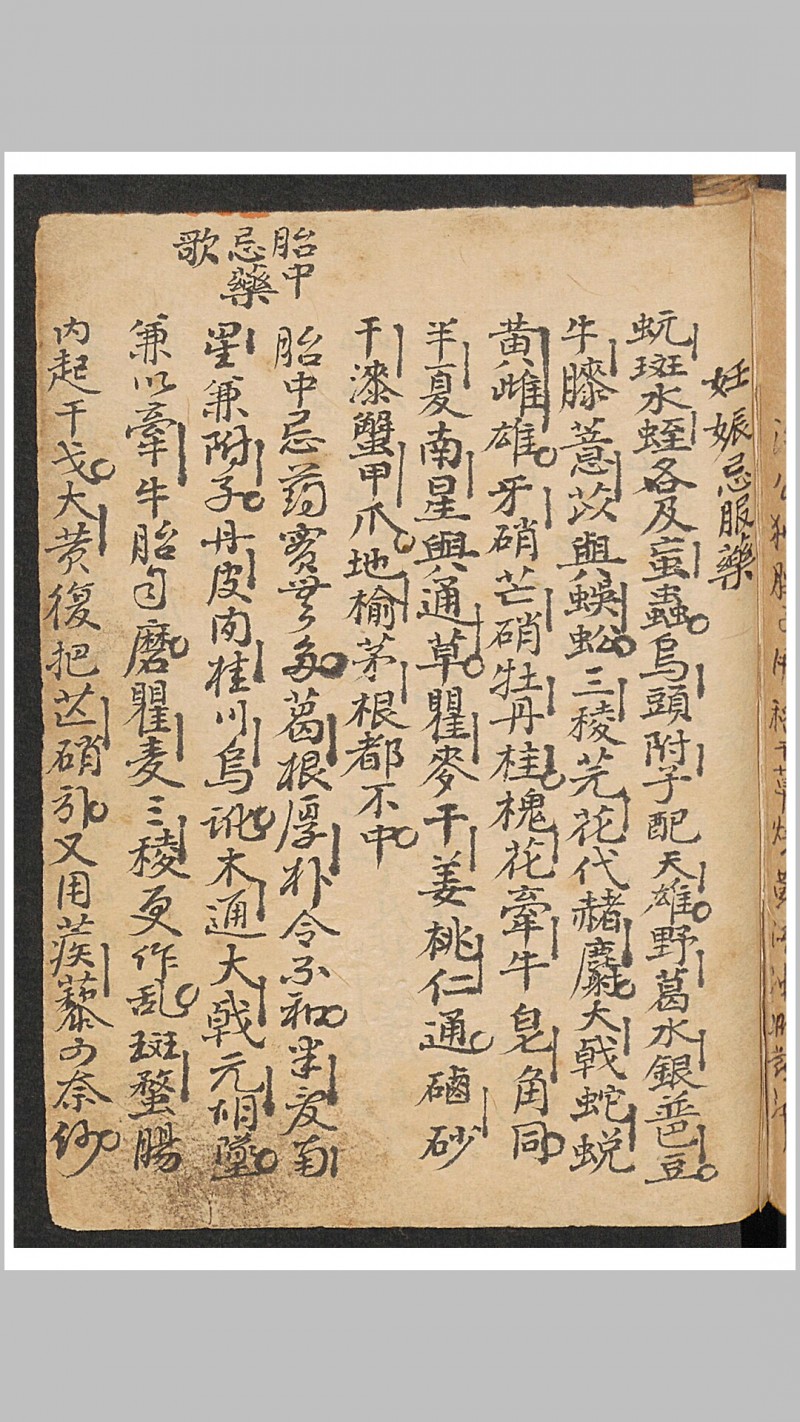 妊娠忌服藥
蚖斑水蛭各及䖟蟲烏頭附子配天雄野葛水銀並巴豆
牛膝薏苡與蜈蚣三稜芫花代赭麝大戟蛇蛻
黃雌雄牙硝芒硝牡丹桂槐花牽牛皂角同
半夏南星與通草瞿麥干姜桃仁通硇砂
干漆蟹甲爪地榆茅根都不中
胎中忌藥歌
胎中忌药實無多葛根厚朴令不和半夏南
星兼附子丹皮肉桂川烏訛木通大戟元胡墜
兼以牽牛胎自磨瞿麦三稜更作乱斑蝥腸
内起干戈大黄復把芒硝引又用蒺藜可奈何